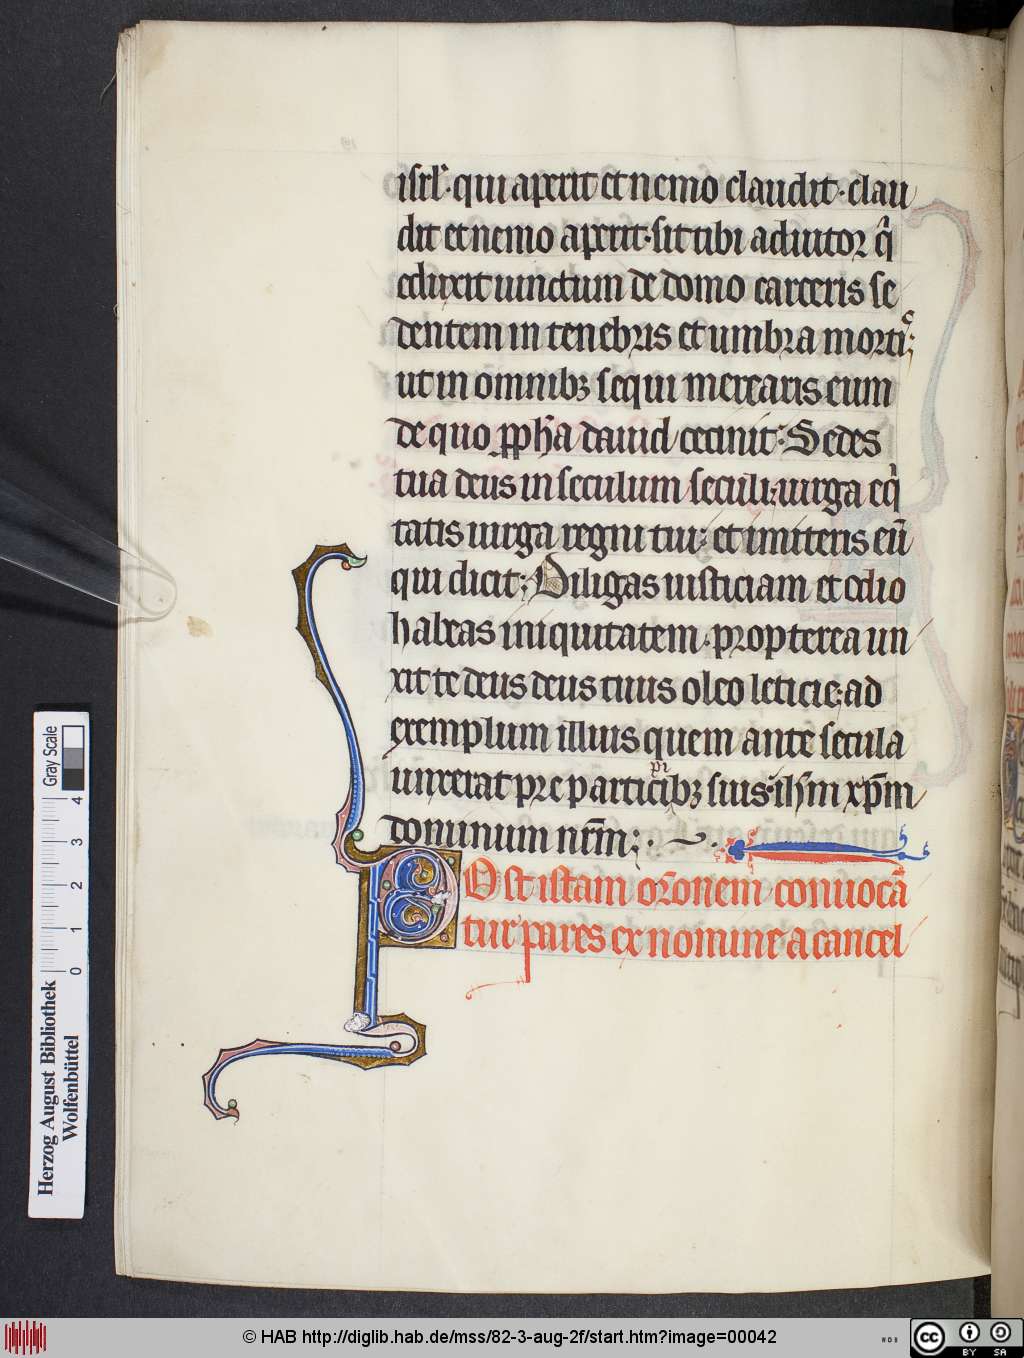 isrl̕. qui aperit et nemo claudit. clau
dit et nemo aperit. sit tibi adiutor q̄
eduxit uinctum de domo carceris se
dentem in tenebris et umbra mortis;
ut in omnibꝫ sequi merearis eum
de quo ꝓpha dauid cecinit. Sedes
tua deus in seculum seculi; uirga eq̄
tatis uirga regni tui; et imiteris eū
qui dicit; Diligas iusticiam et odio
habeas iniquitatem. propterea un
xit te deus deus tuus oleo leticie; ad
exemplum illius quem ante secula
unxerat pre participibꝫ suis. ihm xp̄m
dominum nr̄m;
Post istam or̄onem conuocā
tur pares ex nomine a cancel
Herzog August Bibliothek
Wolfenbüttel
0 1 2 3 4
Gray Scale
© HAB http://diglib.hab.de/mss/82-3-aug-2f/start.htm?image=00042
WDB
cc BY SA